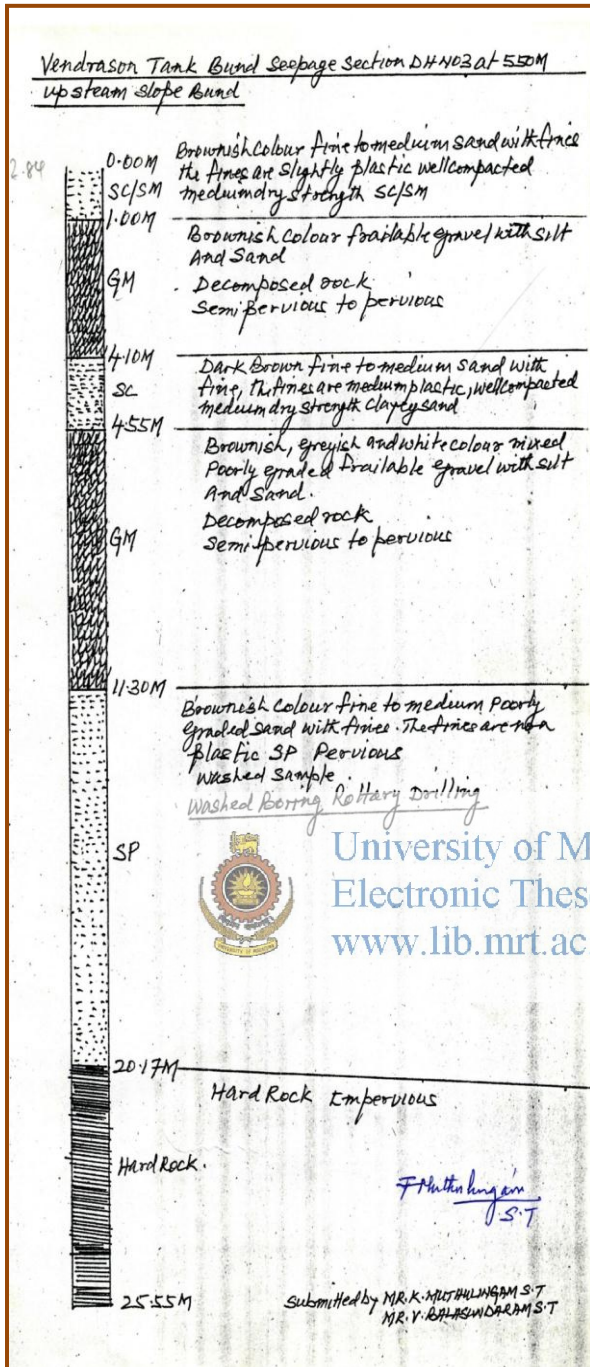 Vendrason Tank Bund Seepage Section DHNO3 at 550M
upsteam Slope Bund
2.84
0.00M
Brownish Colour fine to medium sand with fines
the fines are slightly plastic wellcompacted
medium dry strength SC/SM
SC/SM
1.00M
Brownish Colour frailable gravel with silt
And Sand
GM
Decomposed rock
Semi pervious to pervious
4.10M
Dark Brown fine to medium sand with
fine, the fines are medium plastic, wellcompacted
medium dry strength clayey sand
SC
4.55M
Brownish, greyish and white colour mixed
Poorly graded frailable gravel with silt
And Sand.
Decomposed rock
GM
Semi pervious to pervious
11.30M
Brownish Colour fine to medium Poorly
graded sand with fines. The fines are non
plastic SP Pervious
Washed Sample.
Washed Boring Rottary Drilling
SP
University of M
Electronic Thes
www.lib.mrt.ac
UNIVERSITY OF MORATUWA
20.17M
Hard Rock Empervious
Hard Rock.
S.T
25.55M
Submitted by MR.K.MUTHULINGAM S.T
MR.V.BALASUNDARAM S.T